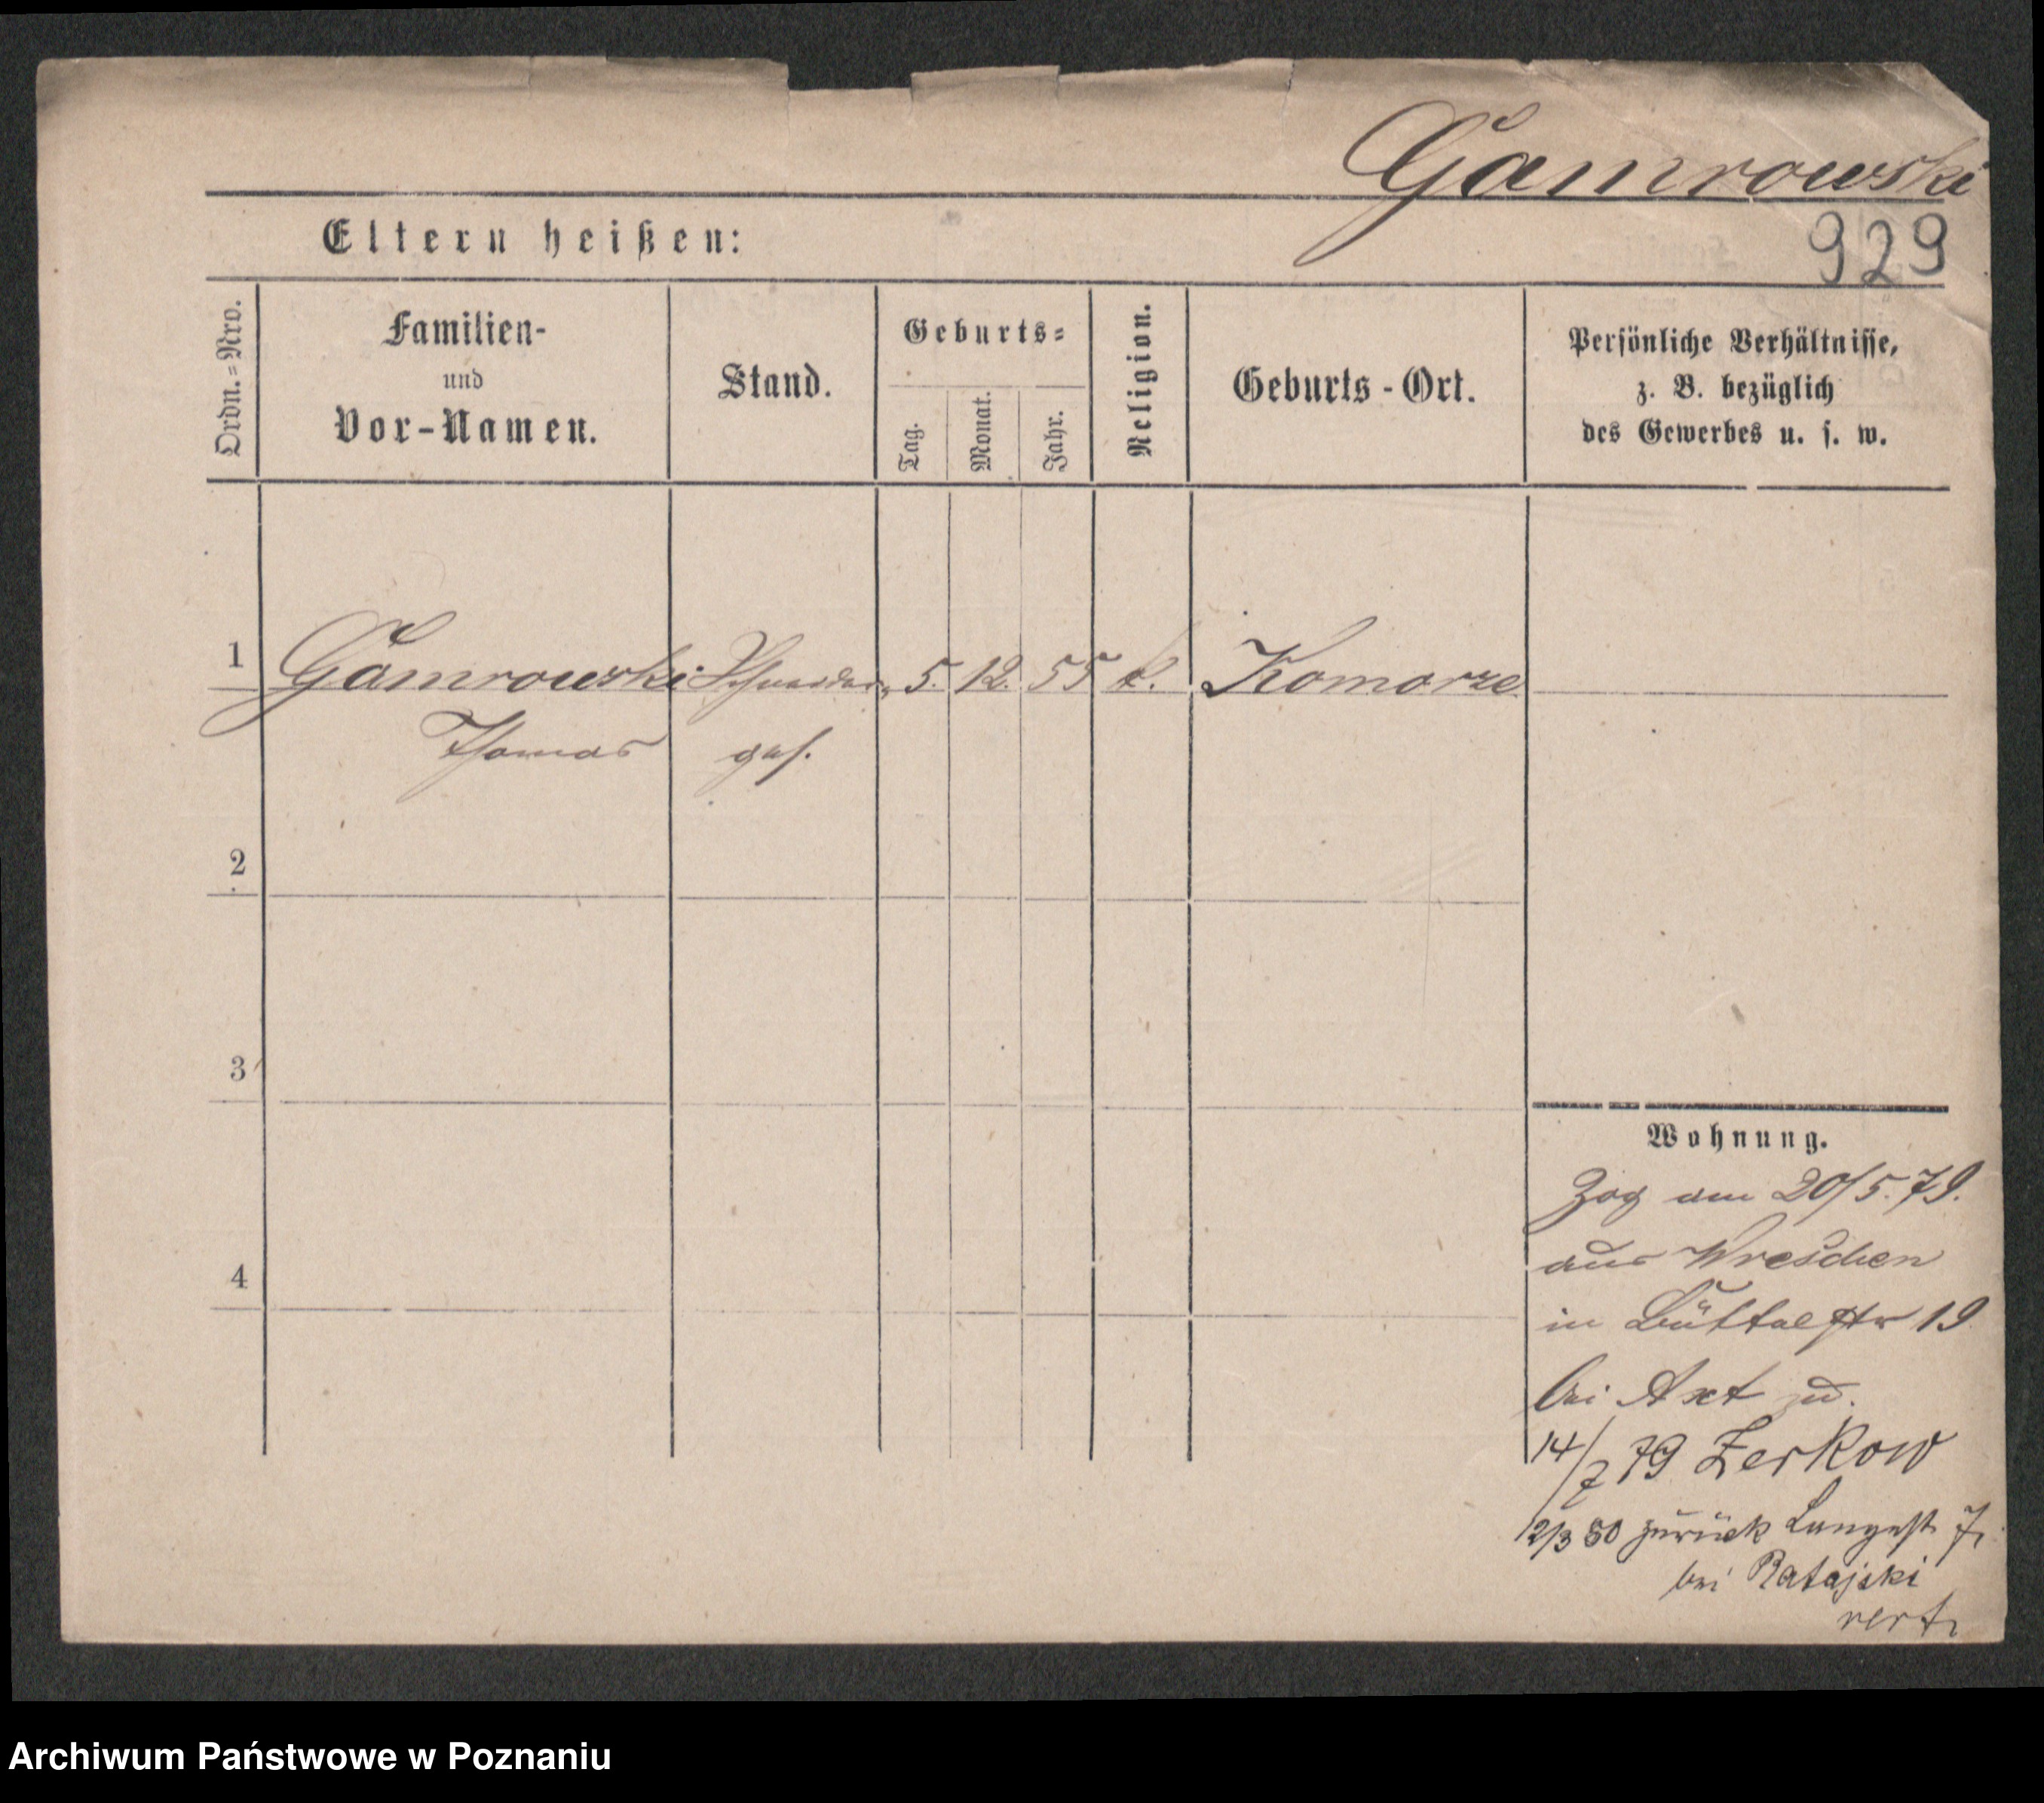 Gamrowski
929
Eltern heißen:
Ordn.-Nro.
Familien-
und
Vor-Namen.
Stand.
Geburts-
Tag.
Monat.
Jahr.
Religion.
Geburts-Ort.
Persönliche Verhältnisse,
z. B. bezüglich
des Gewerbes u. s. w.
1 Gamrowski Schneider 5. 12. 55 k. Komorze
Thomas ges.
2
3
4
Wohnung.
Zog am 20/5.79.
aus Wreschen
in Büttelstr 19
bei Axt
14/7 79 Zerkow
12/3 80 zurück Langest. 7,
bei Ratajski
vert,
Archiwum Państwowe w Poznaniu